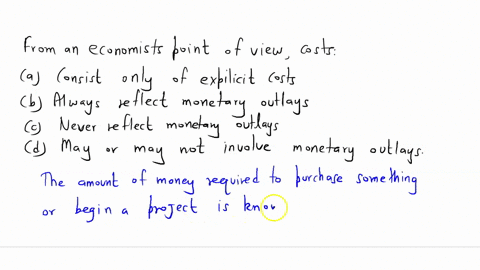 From an economists point of view, costs:
(a) Consist only of expilicit costs
(b) Always reflect monetary outlays
(c) Never reflect monetary outlays
(d) May or may not involve monetary outlays.
The amount of money required to purchase something
or begin a project is know